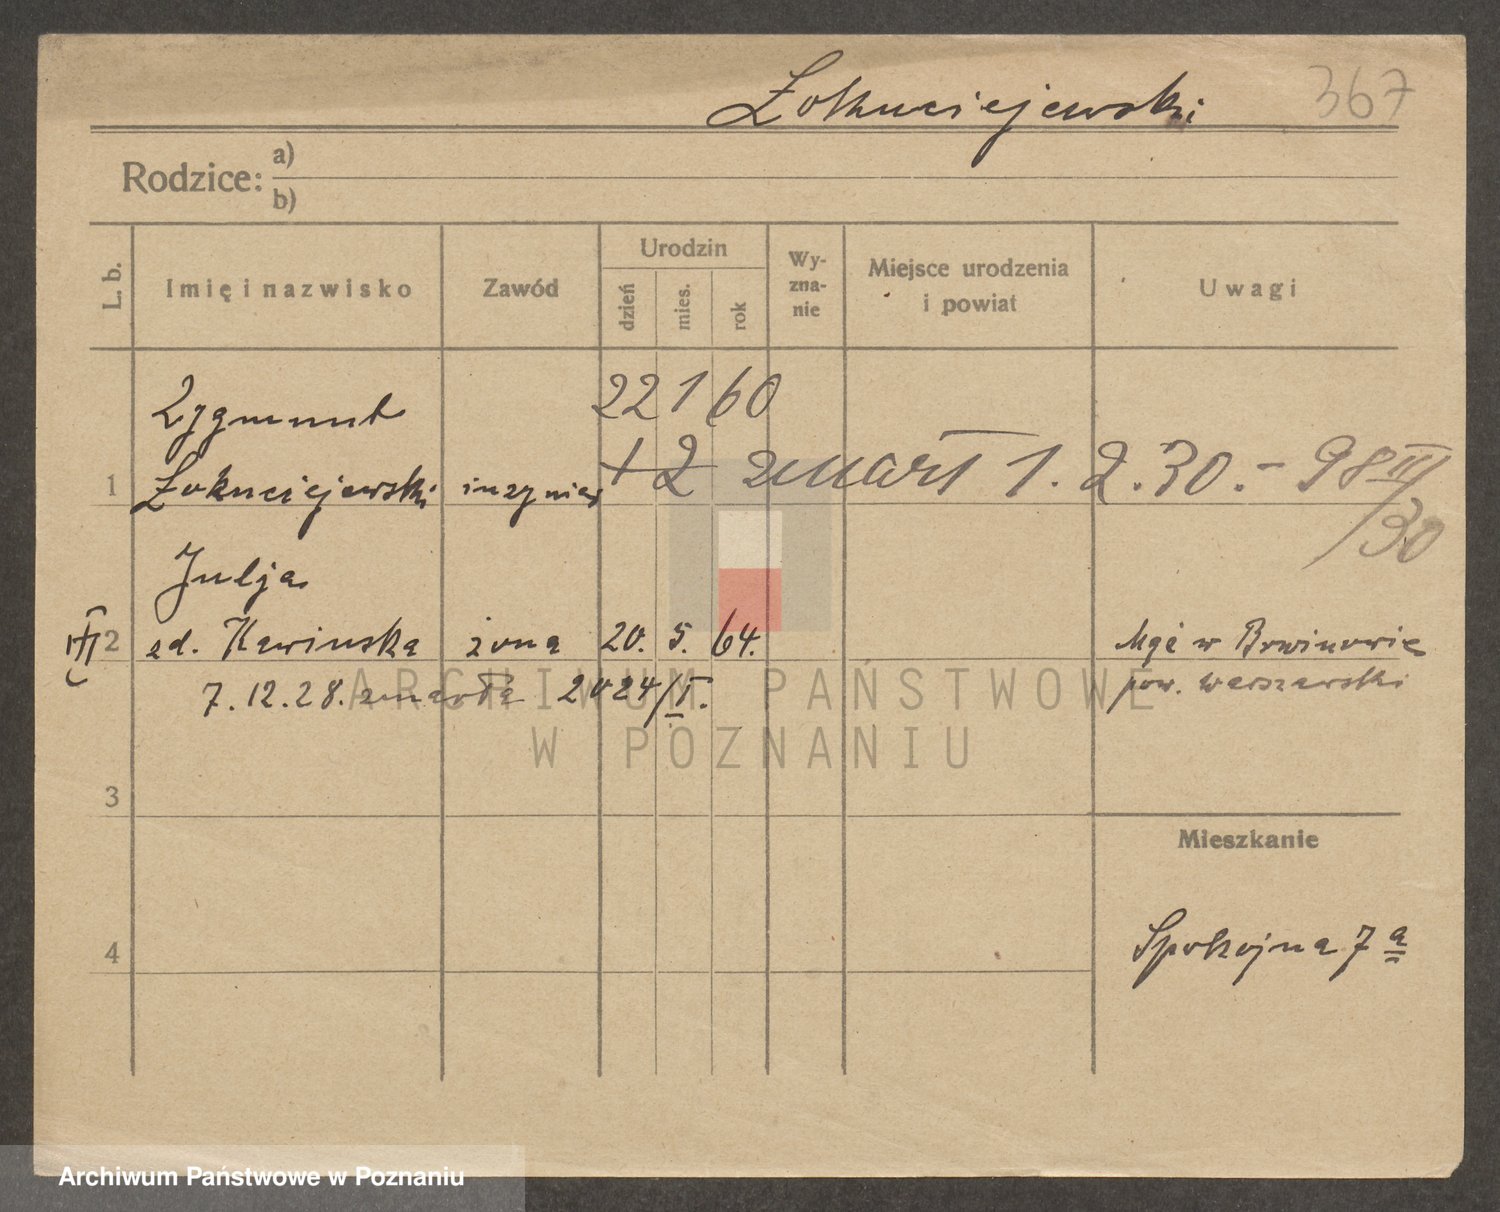 367
Rodzice: a)
b)
L. b.
Imię i nazwisko
Zawód
Urodzin
dzień
mies.
rok
Wy-
zna-
nie
Miejsce urodzenia
i powiat
Uwagi
Zygmunt
22 1 60
1 inżynier +2 zmarł 1.2.30.- 98 III
/30
Julja
2 zd. żona 20. 5. 64. Mąż w Brwinowie
7.12.28. zmarła 2024/I. pow. warszawski
3
Mieszkanie
4 Spokojna 7 a
ARCHIWUM PAŃSTWOWE
W POZNANIU
Archiwum Państwowe w Poznaniu